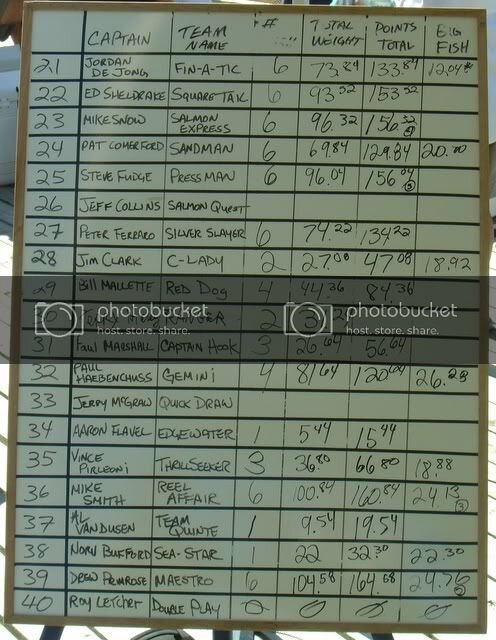 CAPTAIN TEAM NAME # TOTAL WEIGHT POINTS TOTAL BIG FISH
21 JORDAN DE JONG FIN-A-TIC 6 73.84 133.84 12.04
22 ED SHELDRAKE SQUARE TAIL 6 93.52 153.52
23 MIKE SNOW SALMON EXPRESS 6 96.32 156.32
24 PAT COMERFORD SANDMAN 6 69.84 129.84 20.00
25 STEVE FUDGE PRESSMAN 6 96.04 156.04
26 JEFF COLLINS SALMON QUEST
27 PETER FERRARO SILVER SLAYER 6 74.22 134.22
28 JIM CLARK C-LADY 2 27.08 47.08 18.92
29 BILL MALLETTE RED DOG 4 44.36 84.36
30 RANGER 2
photobucket photobucket
host. store. share. host. store. share.
31 PAUL MARSHALL CAPTAIN HOOK 3 26.64 56.64
32 PAUL HAEBENCHUSS GEMINI 4 81.64 120.64 26.28
33 JERRY McGRAW QUICK DRAW
34 AARON FLAVEL EDGEWATER 1 5.44 15.44
35 VINCE PIRLEONI THRILLSEEKER 3 36.80 66.80 18.88
36 MIKE SMITH REEL AFFAIR 6 100.84 160.84 24.13 3
37 AL VANDUSEN TEAM QUINTE 1 9.54 19.54
38 NORV BUFFORD SEA-STAR 1 22 32.30 22.30
39 DREW PENROSE MAESTRO 6 104.58 164.58 24.76
40 ROY LETCHER DOUBLE PLAY 0 0 0 0